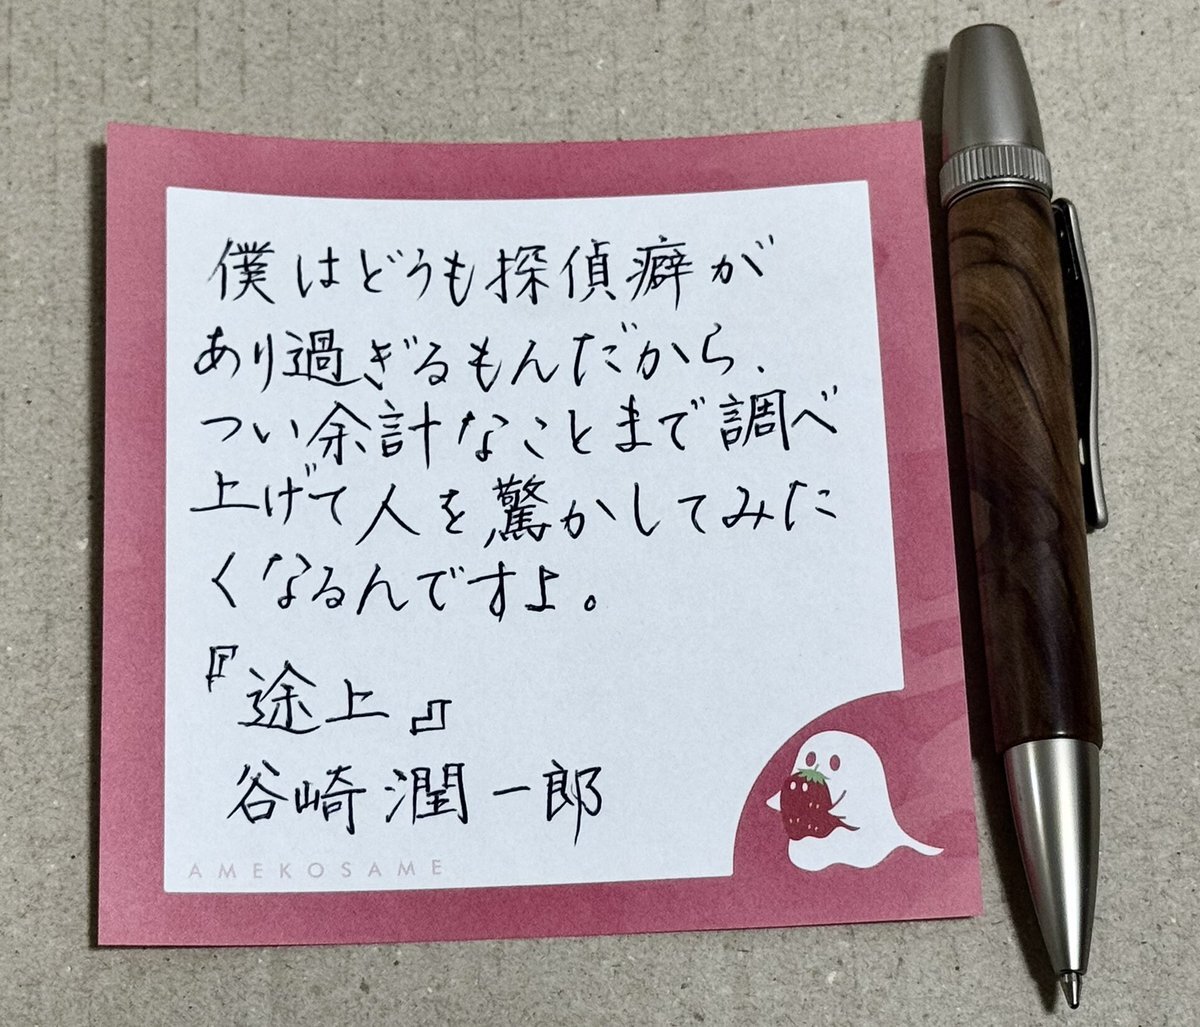 僕はどうも探偵癖が
あり過ぎるもんだから、
つい余計なことまで調べ
上げて人を驚かしてみた
くなるんですよ。
『途上』
谷崎潤一郎
AMEKOSAME